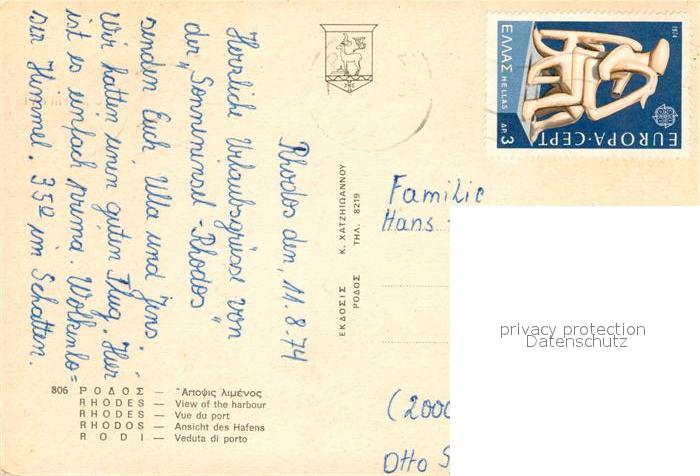 Rhodos den, 11.8.74
Herzliche Urlaubsgrüsse von
der „Sonneninsel-Rhodos"
senden Euch Ulla und Jens.
Wir hatten einen guten Flug. Hier
ist es einfach prima. Wolkenlo=
ser Himmel. 35° im Schatten.
806 ΡΟΔΟΣ — Ἄποψις λιμένος
RHODES — View of the harbour
RHODES — Vue du port
RHODOS — Ansicht des Hafens
RODI — Veduta di porto
ΕΚΔΟΣΙΣ Κ. ΧΑΤΖΗΙΩΑΝΝΟΥ
ΡΟΔΟΣ ΤΗΛ. 8219
1974
ΕΛΛΑΣ HELLAS ΔΡ. 3
EUROPA-CEPT
Familie
Hans
(2000
Otto S
privacy protection
Datenschutz